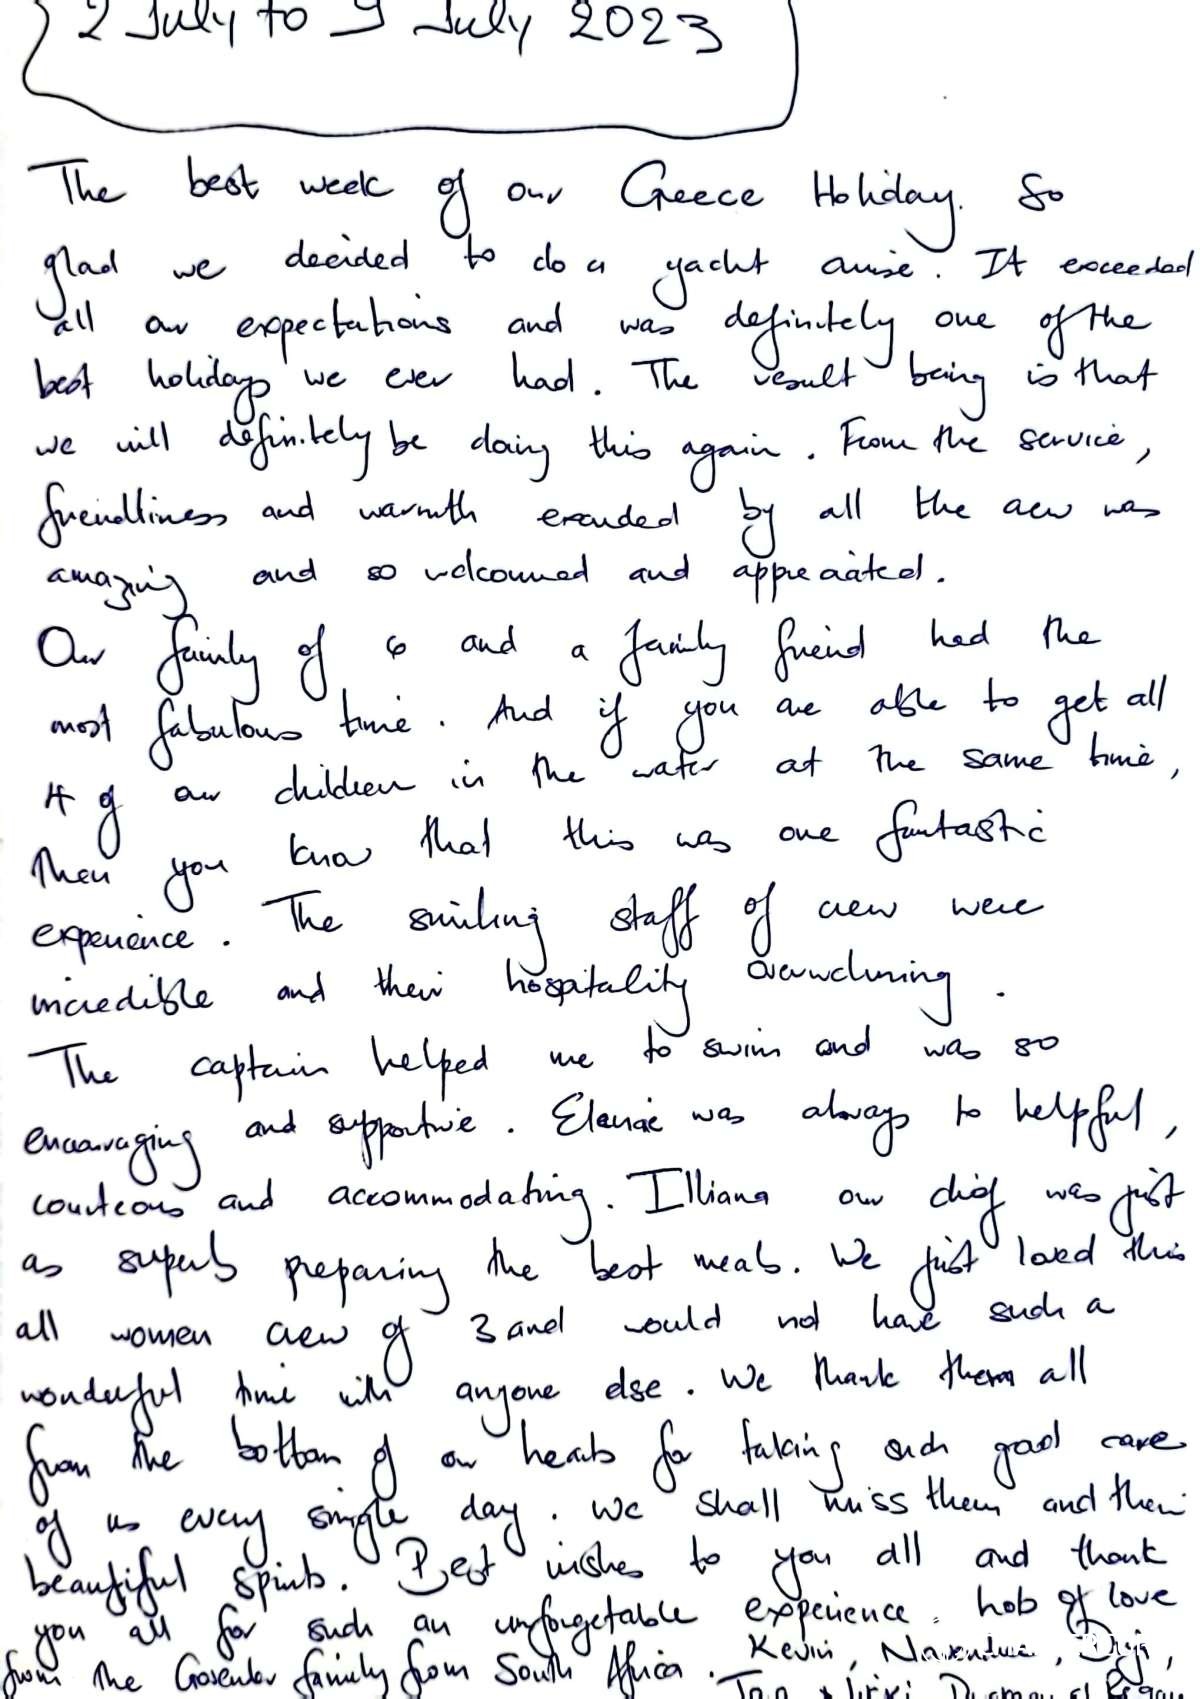 2 July to 9 July 2023
The best week of our Greece Holiday. So
glad we decided to do a yacht cruise. It exceeded
all our expectations and was definitely one of the
best holidays we ever had. The result being is that
we will definitely be doing this again. From the service,
friendliness and warmth exuded by all the crew was
amazing and so welcomed and appreciated.
Our family of 6 and a family friend had the
most fabulous time. And if you are able to get all
4 of our children in the water at the same time,
then you know that this was one fantastic
experience. The smiling staff of crew were
incredible and their hospitality overwhelming.
The captain helped me to swim and was so
encouraging and supportive. was always to helpful,
courteous and accommodating. Illiana our chief was just
as superb preparing the best meals. We just loved this
all women crew of 3 and would not have such a
wonderful time with anyone else. We thank them all
from the bottom of our hearts for taking such good care
of us every single day. We shall miss them and their
beautiful spirits. Best wishes to you all and thank
you all for such an unforgetable experience. of love
from the family from South Africa. Kevin,